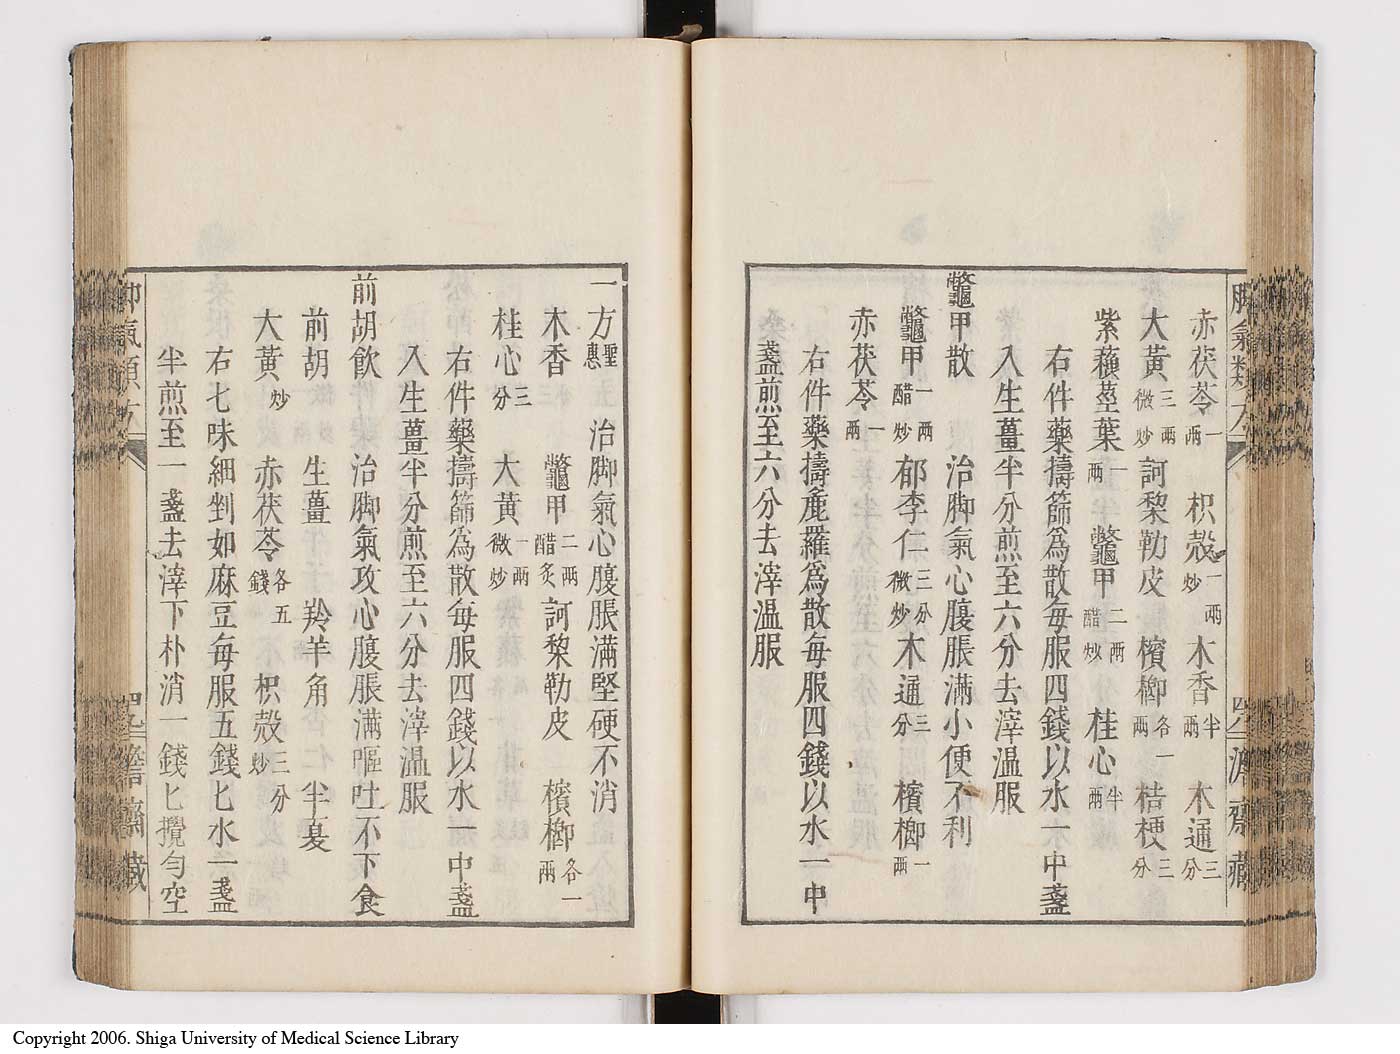 赤茯苓一兩 枳殼一兩炒 木香半兩 木通三分
大黃三兩微炒 訶黎勒皮 檳榔各一兩 桔梗三分
紫蘓莖葉一兩 鼈甲二兩醋炒 桂心半兩
右件藥擣篩爲散每服四錢以水一中盞
入生薑半分煎至六分去滓溫服
鼈甲散 治脚氣心腹脹滿小便不利
鼈甲一兩醋炒 郁李仁三分微炒 木通三分 檳榔一兩
赤茯苓一兩
右件藥擣麁羅爲散每服四錢以水一中
盞煎至六分去滓溫服
一方聖惠 治脚氣心腹脹滿堅硬不消
木香 鼈甲二兩醋炙 訶黎勒皮 檳榔各一兩
桂心三分 大黃一兩微炒
右件藥擣篩爲散每服四錢以水一中盞
入生薑半分煎至六分去滓溫服
前胡飲 治脚氣攻心腹脹滿嘔吐不下食
前胡 生薑 羚羊角 半夏
大黃炒 赤茯苓各五錢 枳殼三分炒
右七味細剉如麻豆每服五錢匕水一盞
半煎至一盞去滓下朴消一錢匕攪勻空
Copyright 2006. Shiga University of Medical Science Library